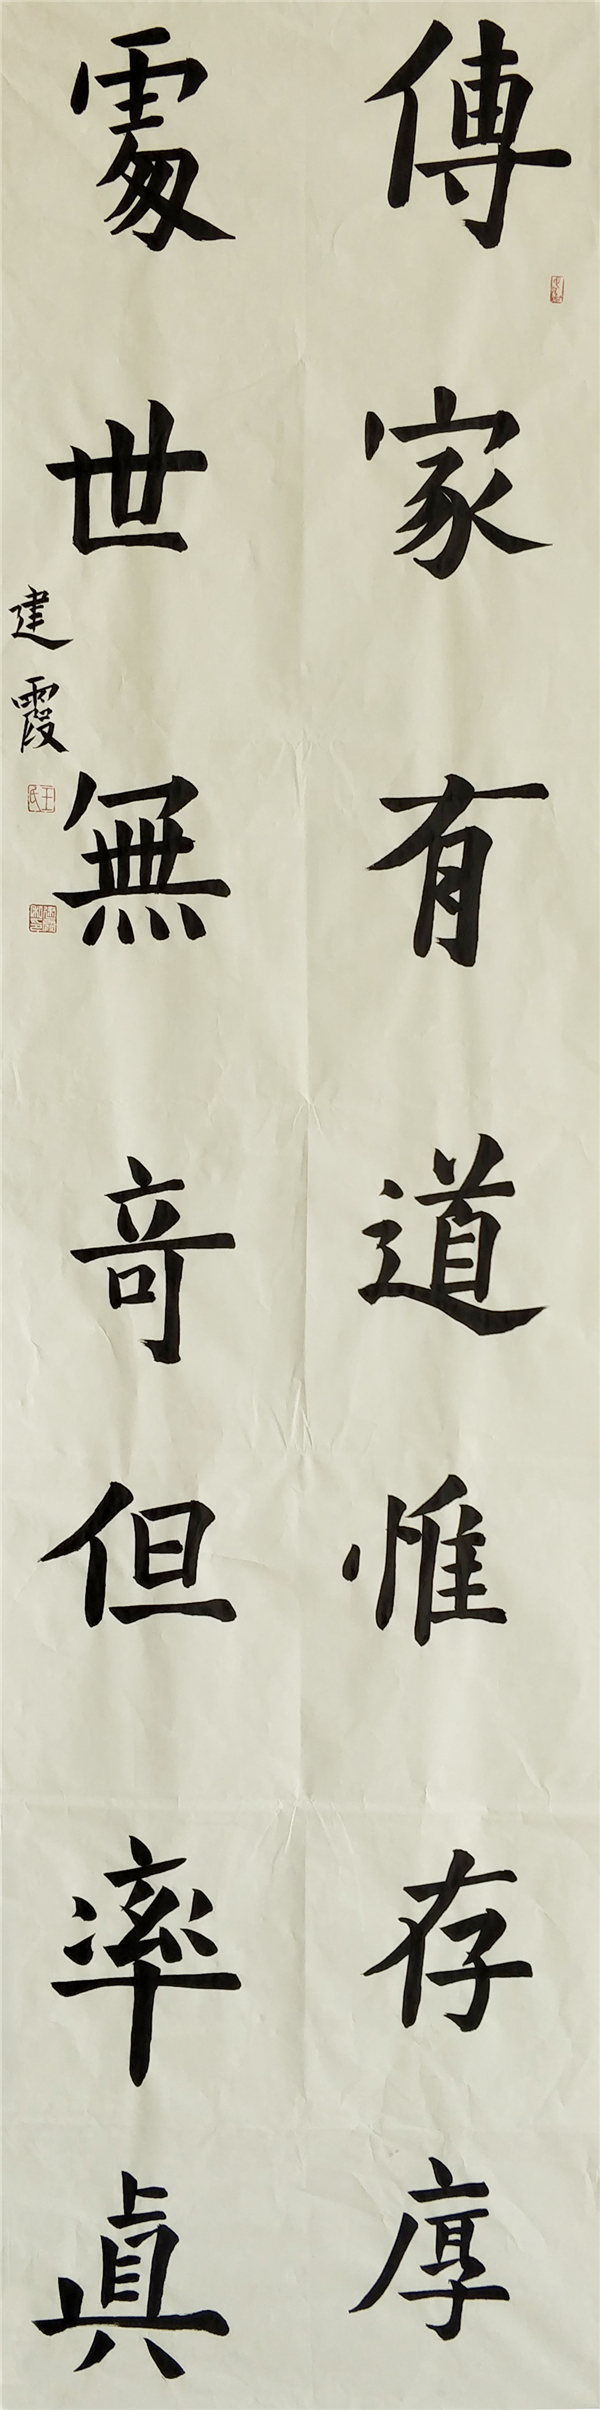 傳家有道惟存厚
處世無奇但率真
建霞
王氏